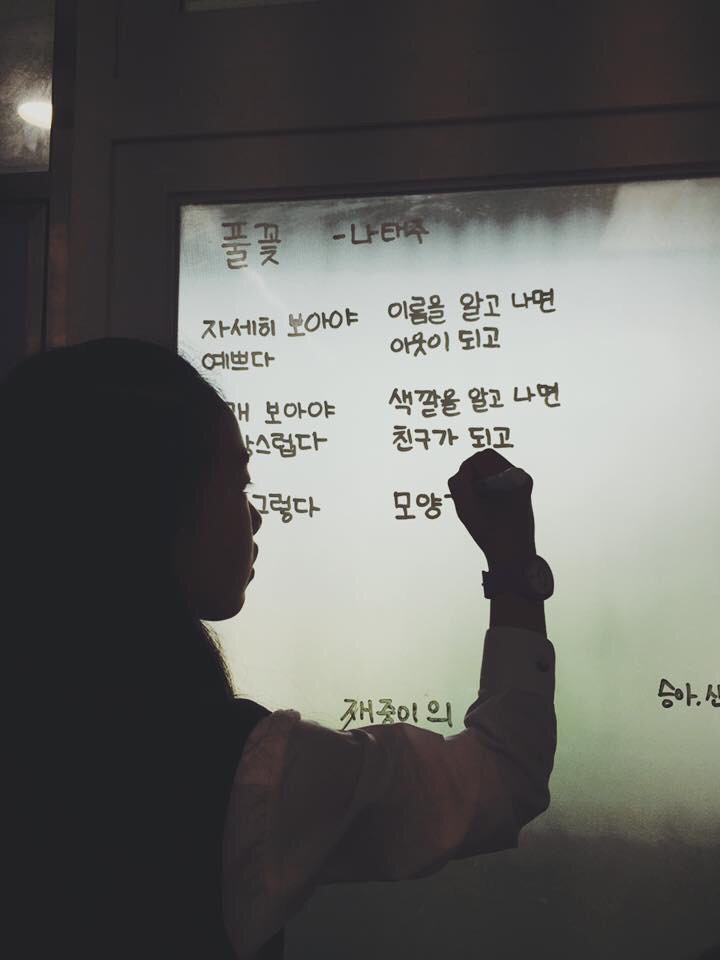 풀꽃 -나태주
자세히 보아야
예쁘다
보아야
스럽다
그렇다
이름을 알고 나면
아웃이 되고
색깔을 알고 나면
친구가 되고
모양
승아.